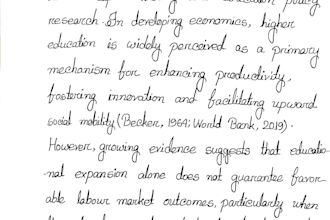 research. In developing economics, higher
education is widely perceived as a primary
mechanism for enhancing productivity,
fostering innovation and facilitating upward
social mobility (Becker, 1964; World Bank, 2019).
However, growing evidence suggests that educatio-
nal expansion alone does not guarantee favor-
able labour market outcomes, particularly when